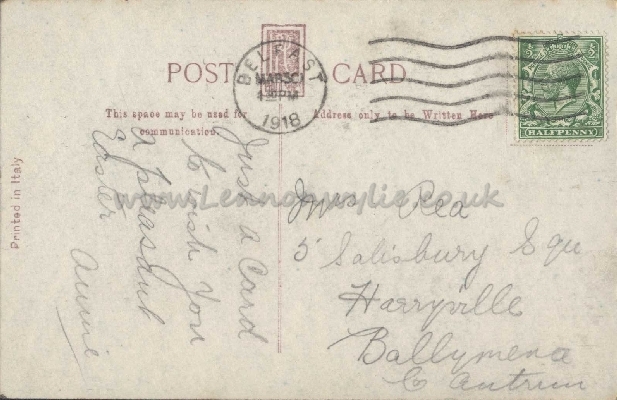 POST CARD
BELFAST
1918
HALFPENNY
This space may be used for
communication.
Address only to be Written Here
Printed in Italy
Just a Card
to wish you
a pleasant
Easter
Annie
Mrs Rea
5 Salisbury Squ
Harryville
Ballymena
Co Antrim
www.Lennonwylie.co.uk